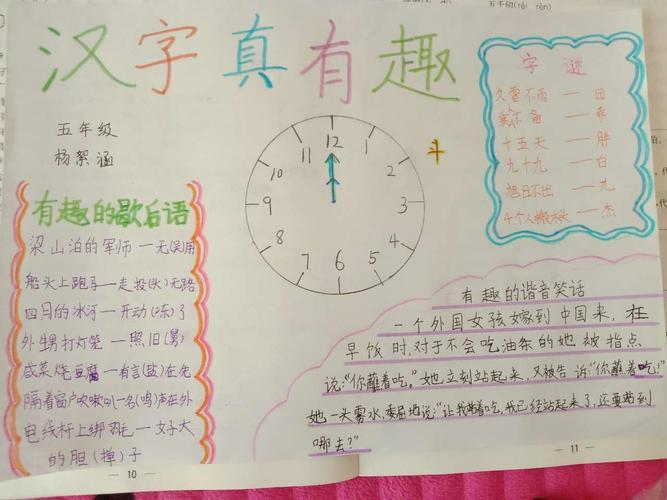 汉字真有趣
五年级
杨絮涵
有趣的歇后语
梁山泊的军师一无(吴)用
船头上跑马一走投(头)无路
四月的冰河一开动(冻)了
外甥打灯笼一照旧(舅)
咸菜炖豆腐一有言(盐)在先
隔着窗户吹喇叭一名(鸣)声在外
电线杆上绑鸡毛一好大
的胆(掸)子
12
1
2
3
4
5
6
7
8
9
10
11
斗
字谜
久雷不雨 — 田
乘不鱼 — 乖
十五天 — 胖
九十九 — 白
旭日不出 — 九
4个人搬木头 — 杰
有趣的谐音笑话
一个外国女孩嫁到中国来,在
早饭时,对于不会吃油条的她被指点
说:“你蘸着吃。”她立刻站起来,又被告诉:“你蘸着吃!”
她一头雾水,委屈地说:“让我站着吃,我已经站起来了,还要站到
哪去?”
10
11